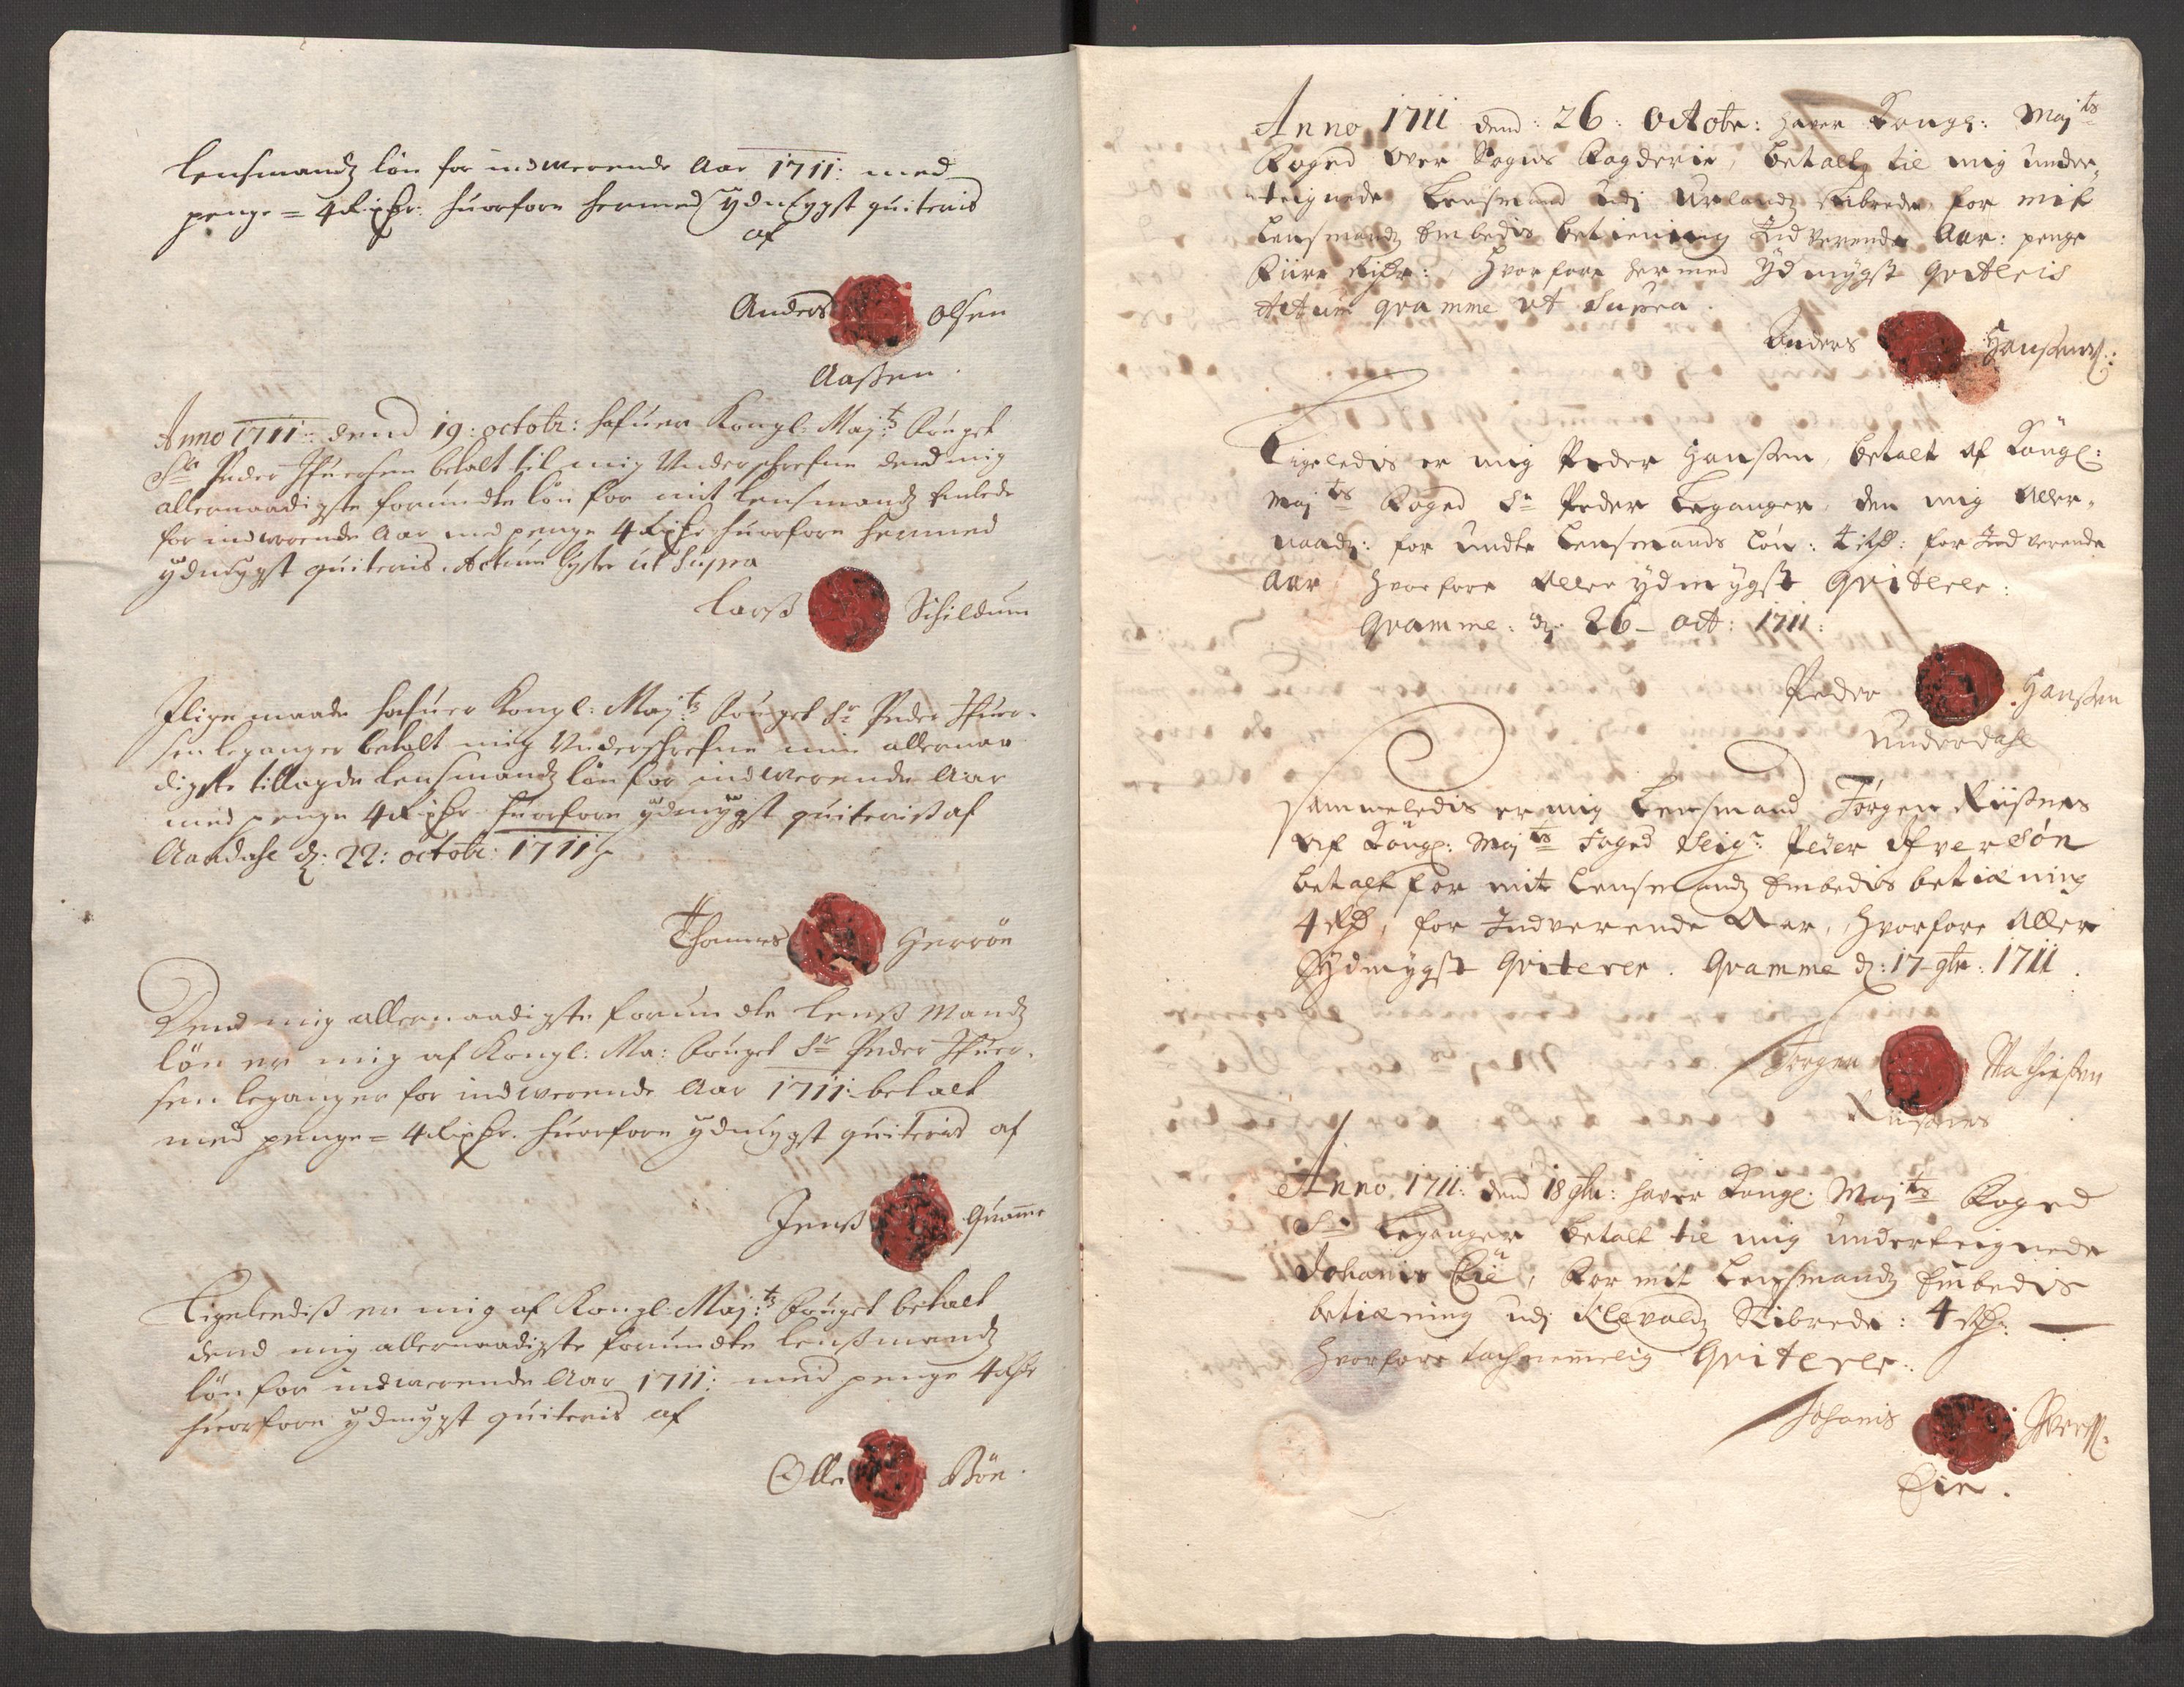 Lensmandz løn for indwerende Aar 1711: med
penge = 4 Rixdr: huorfore hermed ydmygst quiteris
af
Anders Olsen
Aaßen.
Anno 1711: dend 19: octobr: hafuer Kongl: Maj:ts fouget
Sr Peder Ifuersen betalt til mig Underschrefne dend mig
allernaadigste forundte løn for mit Lensmandz
for indwerende Aar med penge 4 Rixdr huorfore hermed
ydmygst quiteris. Actum Lyster ut Supra
Larß Schildum
Ilige maade hafuer Kongl: Maj:ts fouget Sr Peder Ifuer-
sen Leganger betalt mig Underschrefne min allernaa-
digste tillagde Lensmandz løn for indwerende Aar
med penge 4 Rixdr huorfore ydmygst quiteris af
Aardahl d: 22: octobr: 1711
Thomes
Dend mig allernaadigste forundte Lenß Mandz
løn er mig af Kongl: Ma: fouget Sr Peder Ifuer-
sen Leganger for indwerende Aar 1711: betalt
med penge = 4 Rixdr. huorfore ydmygst quiteris af
Jenß Quamme
Ligeleediß er mig af Kongl: Maj:ts fouget betalt
dend mig allernaadigste forundte Lenßmandz
løn for indwerende Aar 1711: med penge 4 Rdr
huorfore ydmygst quiteris af
Olle Bøn.
Anno 1711 dend: 26: octobr: haver Kongl: Majts
Foged over Sogns Fogderie, betalt til mig under-
teignede Lensmand udj Urlandz Skibrede for mit
Lensmandz Embedis betiening Indverende Aar: penge
Fiire Rixdr: Hvorfore hermed Ydmygst Qviteris
Actum Qvamme ut Supra.
Anders Hanßen
Ligeledis er mig Peder Hanßen, betalt af Kongl:
Majts Foged Sr Peder Leganger, den mig Aller-
naadg: for undte Lensmands Løn: 4 Rd: for Indverende
Aar Hvorfore Aller ydmygst Qviterer:
Qvamme: d: 26 - oct: 1711:
Peder Hanßen
Underdahl
Sammeledis er mig Lensmand Jørgen Riißnes
Af Kongl: Majts Foged Seigr: Peder Ifversøn
betalt for mit Lensmandz Embedis betiening
4 Rd, for Indverende Aar, Hvorfore Aller
Ydmygst Qviterer. Qvamme d: 17 - 9br: 1711.
Jørgen Mathießen
Riisnes
Anno 1711: dend 18 9br: haver Kongl: Majts Foged
Sr Leganger betalt til mig underteignede
Johanis Eie, For mit Lensmandz Embedis
betiening udj Klevoldz Skibrede: 4 Rdr:
Hvorfore tachnemelig Qviterer.
Johanis Iverß:
Eie.